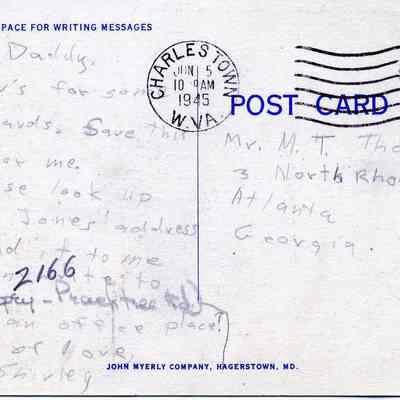 SPACE FOR WRITING MESSAGES
Daddy,
's for som
ards. Save this
or me.
se look up
Jones' address
nd it to me
2166
an office place!
of love,
Shirley
CHARLESTOWN
JUN 5
10 AM
1945
W.VA.
POST CARD
Mr. M. T. Tho
3 North Rho
Atlanta
Georgia.
JOHN MYERLY COMPANY, HAGERSTOWN, MD.